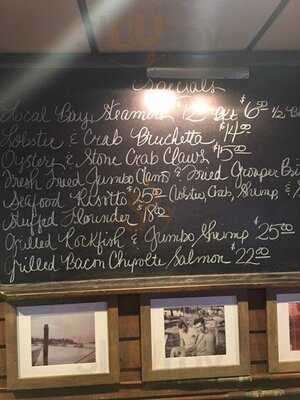 Specials
Local Bay Steamers $12 Doz $6.00 1/2
Lobster & Crab Bruchetta $14.00
Oyster & Stone Crab Claws $15.00
Fresh Fried Jumbo Clams & Fried Grouper
Seafood Risotto $25.00 (Lobster, Crab, Shrimp, &
Stuffed Flounder $18.00
Grilled Rockfish & Jumbo Shrimp $25.00
Grilled Bacon Chipotle Salmon $22.00